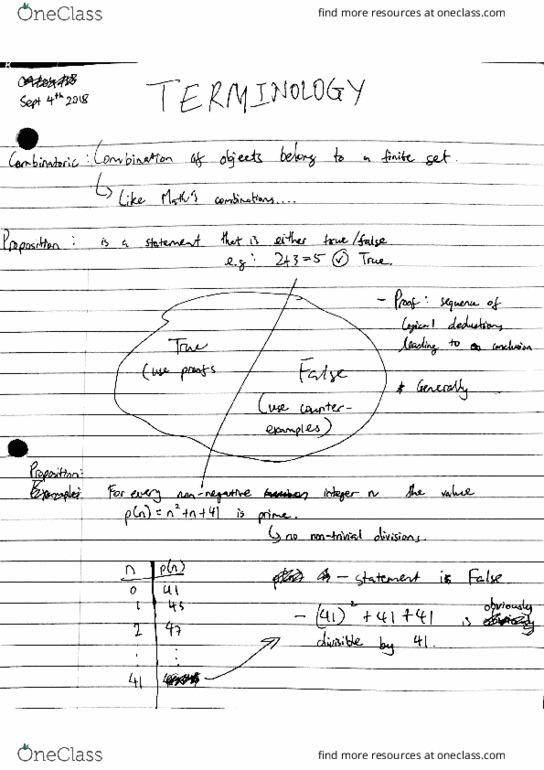 OneClass
find more resources at oneclass.com
Sept 4th 2018
TERMINOLOGY
Combinatoric : Combination of objects belong to a finite set.
↳ Like Math's combinations....
Proposition : is a statement that is either true/false
e.g: 2+3=5 ✓ True.
True
(use proofs
False
(use counter-
examples)
- Proof: sequence of
logical deductions
leading to conclusion
* Generally
Proposition:
Examples
For every non-negative integer n the value
p(n) = n² + n + 41 is prime.
↳ no non-trivial divisions.
n p(n)
0 41
1 43
2 47
: :
41
- statement is False.
- (41)² + 41 + 41 is obviously
divisible by 41.
OneClass
find more resources at oneclass.com